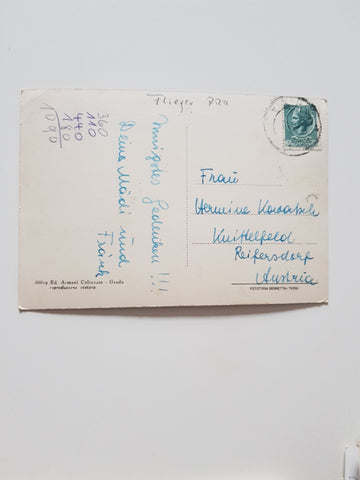 Flieger
360
110
440
180
1090
Innigstes Gedenken !!!
Deine Mädi und
Fränk
Frau
Hermine Kowatsch
Knittelfeld
Reifersdorf
Austria
66619 Ed. Armani Celiberto - Grado
riproduzione vietata
FOTOTIPIA BERRETTA - TERNI